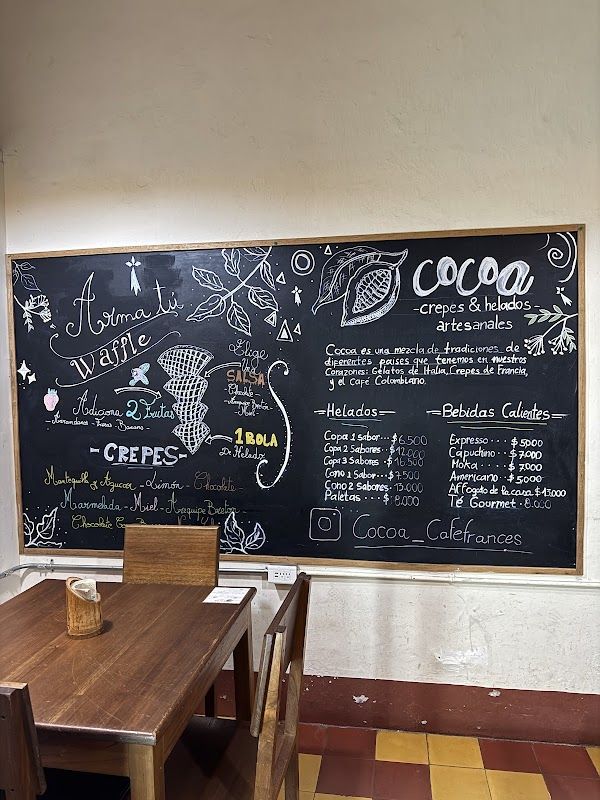 Arma tú
Waffle
Elige
una
SALSA
Chocolate
- Arequipe Breton
- Miel
Adiciona 2 Frutas
- Arandanos - Fresas - Banano
1 BOLA
De Helado
- CREPES -
Mantequilla y Azucar - Limón - Chocolate
Marmelada - Miel - Arequipe Breton
Chocolate
COCOA
- crepes & helados -
artesanales
Cocoa es una mezcla de tradiciones de
diferentes paises que tenemos en nuestros
Corazones: Gelatos de Italia, Crepes de Francia,
y el Café Colombiano.
Helados
Copa 1 sabor... $6.500
Copa 2 Sabores.. $12.000
Copa 3 Sabores.. $16.500
Cono 1 Sabor.. $7.500
Cono 2 Sabores.. 13.000
Paletas.... $8.000
Bebidas Calientes
Expresso.... $5000
Capuchino.. $7.000
Moka.... $7.000
Americano.. $5000
Affogato de la casa $13000
Té Gourmet. 8.000
Cocoa_Cafefrances